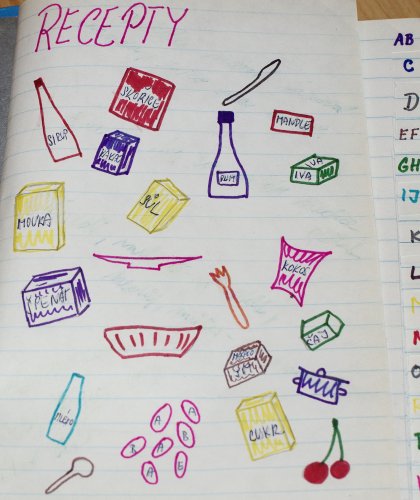 RECEPTY
SKOŘICE
SIRUP
MANDLE
KAKAO
RUM
IVA
IVA
MOUKA
SŮL
KOKOS
ŠPENÁT
ČAJ
MÁSLO
mléko
CUKR
A
A
B
B
A
A
E
AB
C
D
EF
GH
IJ
K
L